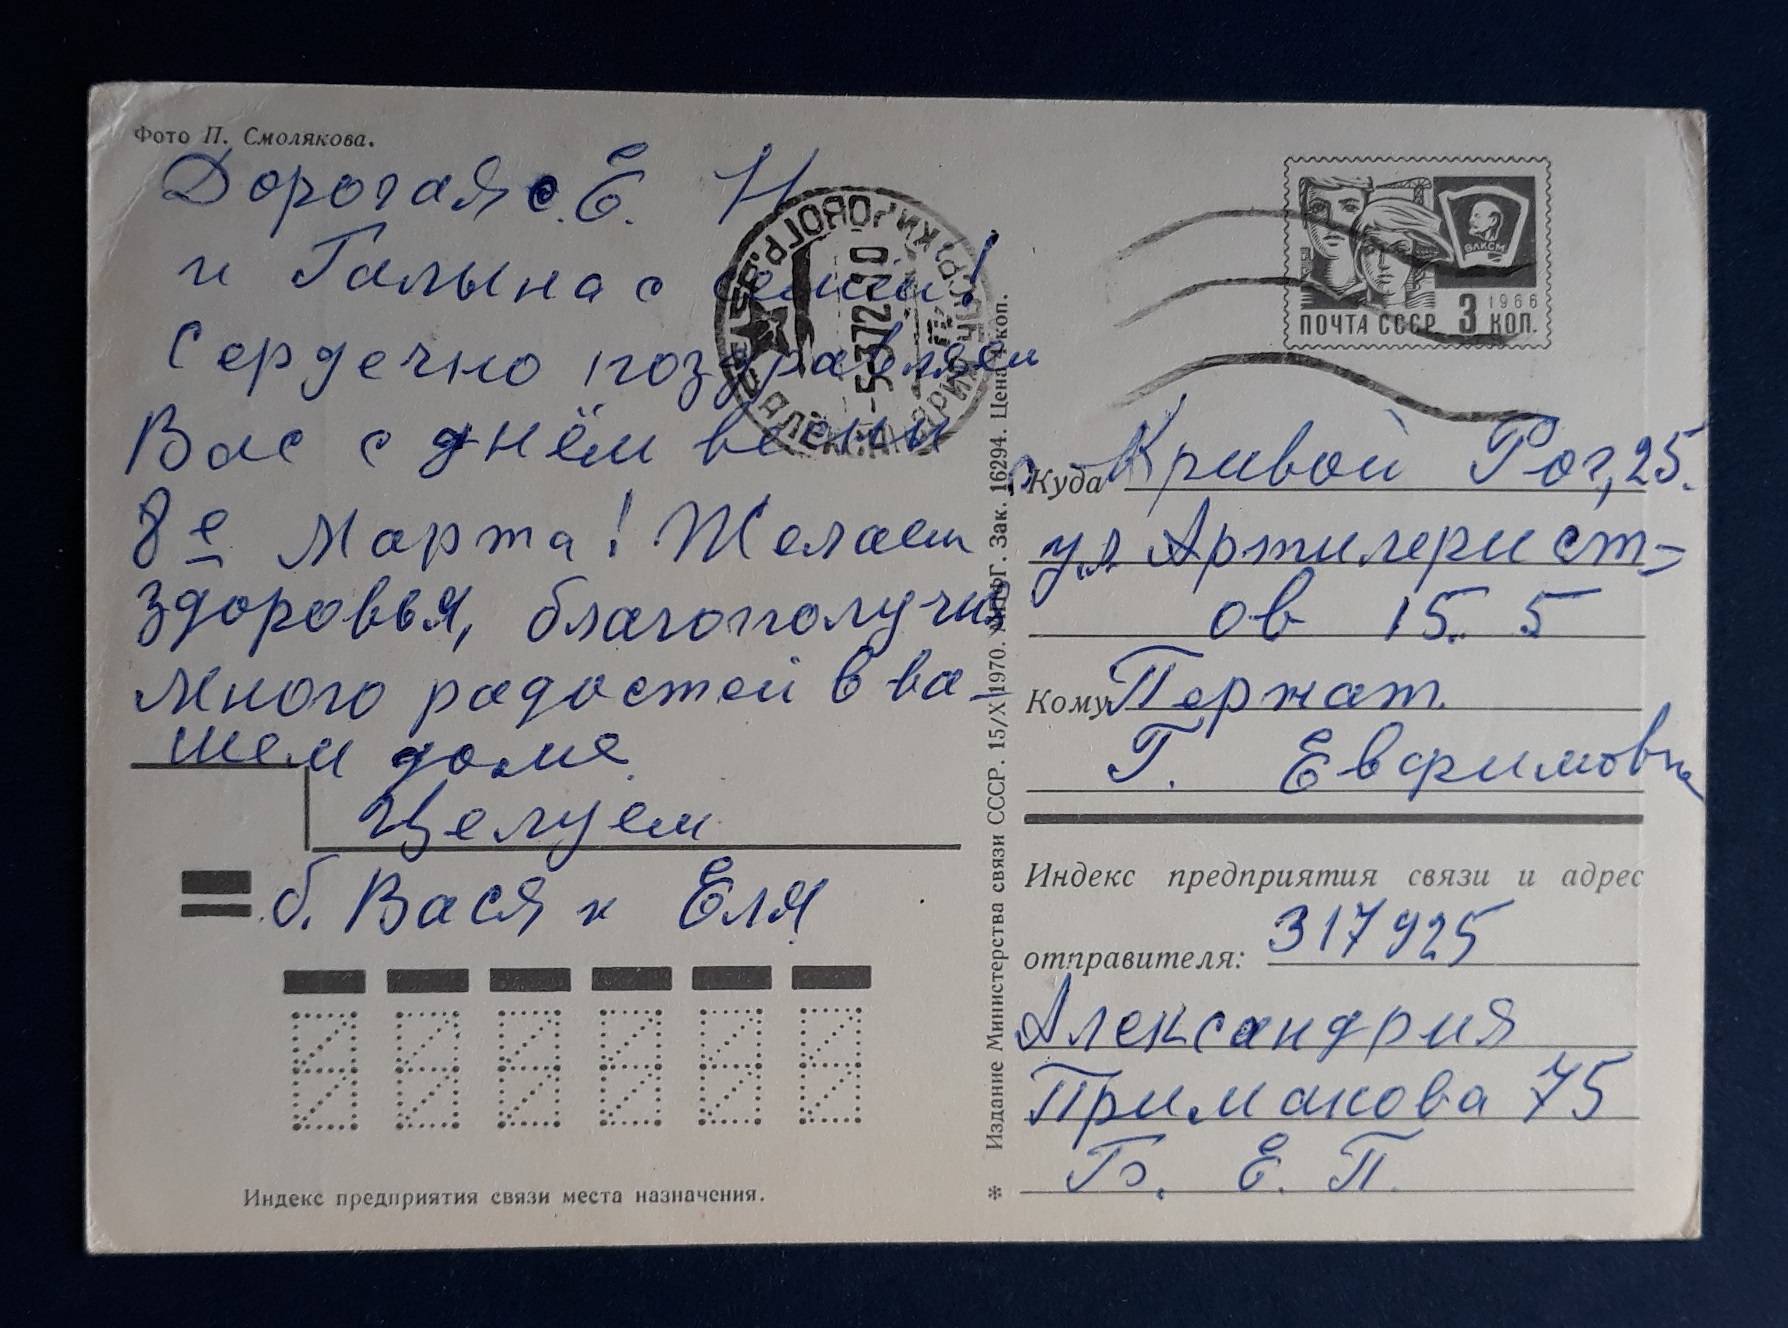 Фото П. Смолякова.
Дорогая с. Е. Н
и Галына с семьёй!
Сердечно поздравляем
Вас с днём весны
8е Марта! Желаем
здоровья, благополучия
много радостей в ва-
шем доме.
Целуем
б. Вася и Еля
Индекс предприятия связи места назначения.
5-372
АЛЕКСАНДРИЯ
* Издание Министерства связи СССР. 15/X 1970. Зак. 16294. Цена коп.
ВЛКСМ
1966
ПОЧТА СССР 3 КОП.
Куда Кривой Рог, 25.
ул Артилерист-
ов 15. 5
Кому Пержат.
Г. Евфимовна
Индекс предприятия связи и адрес
отправителя: 317925
Александрия
Примакова 75
Б. Е. П.